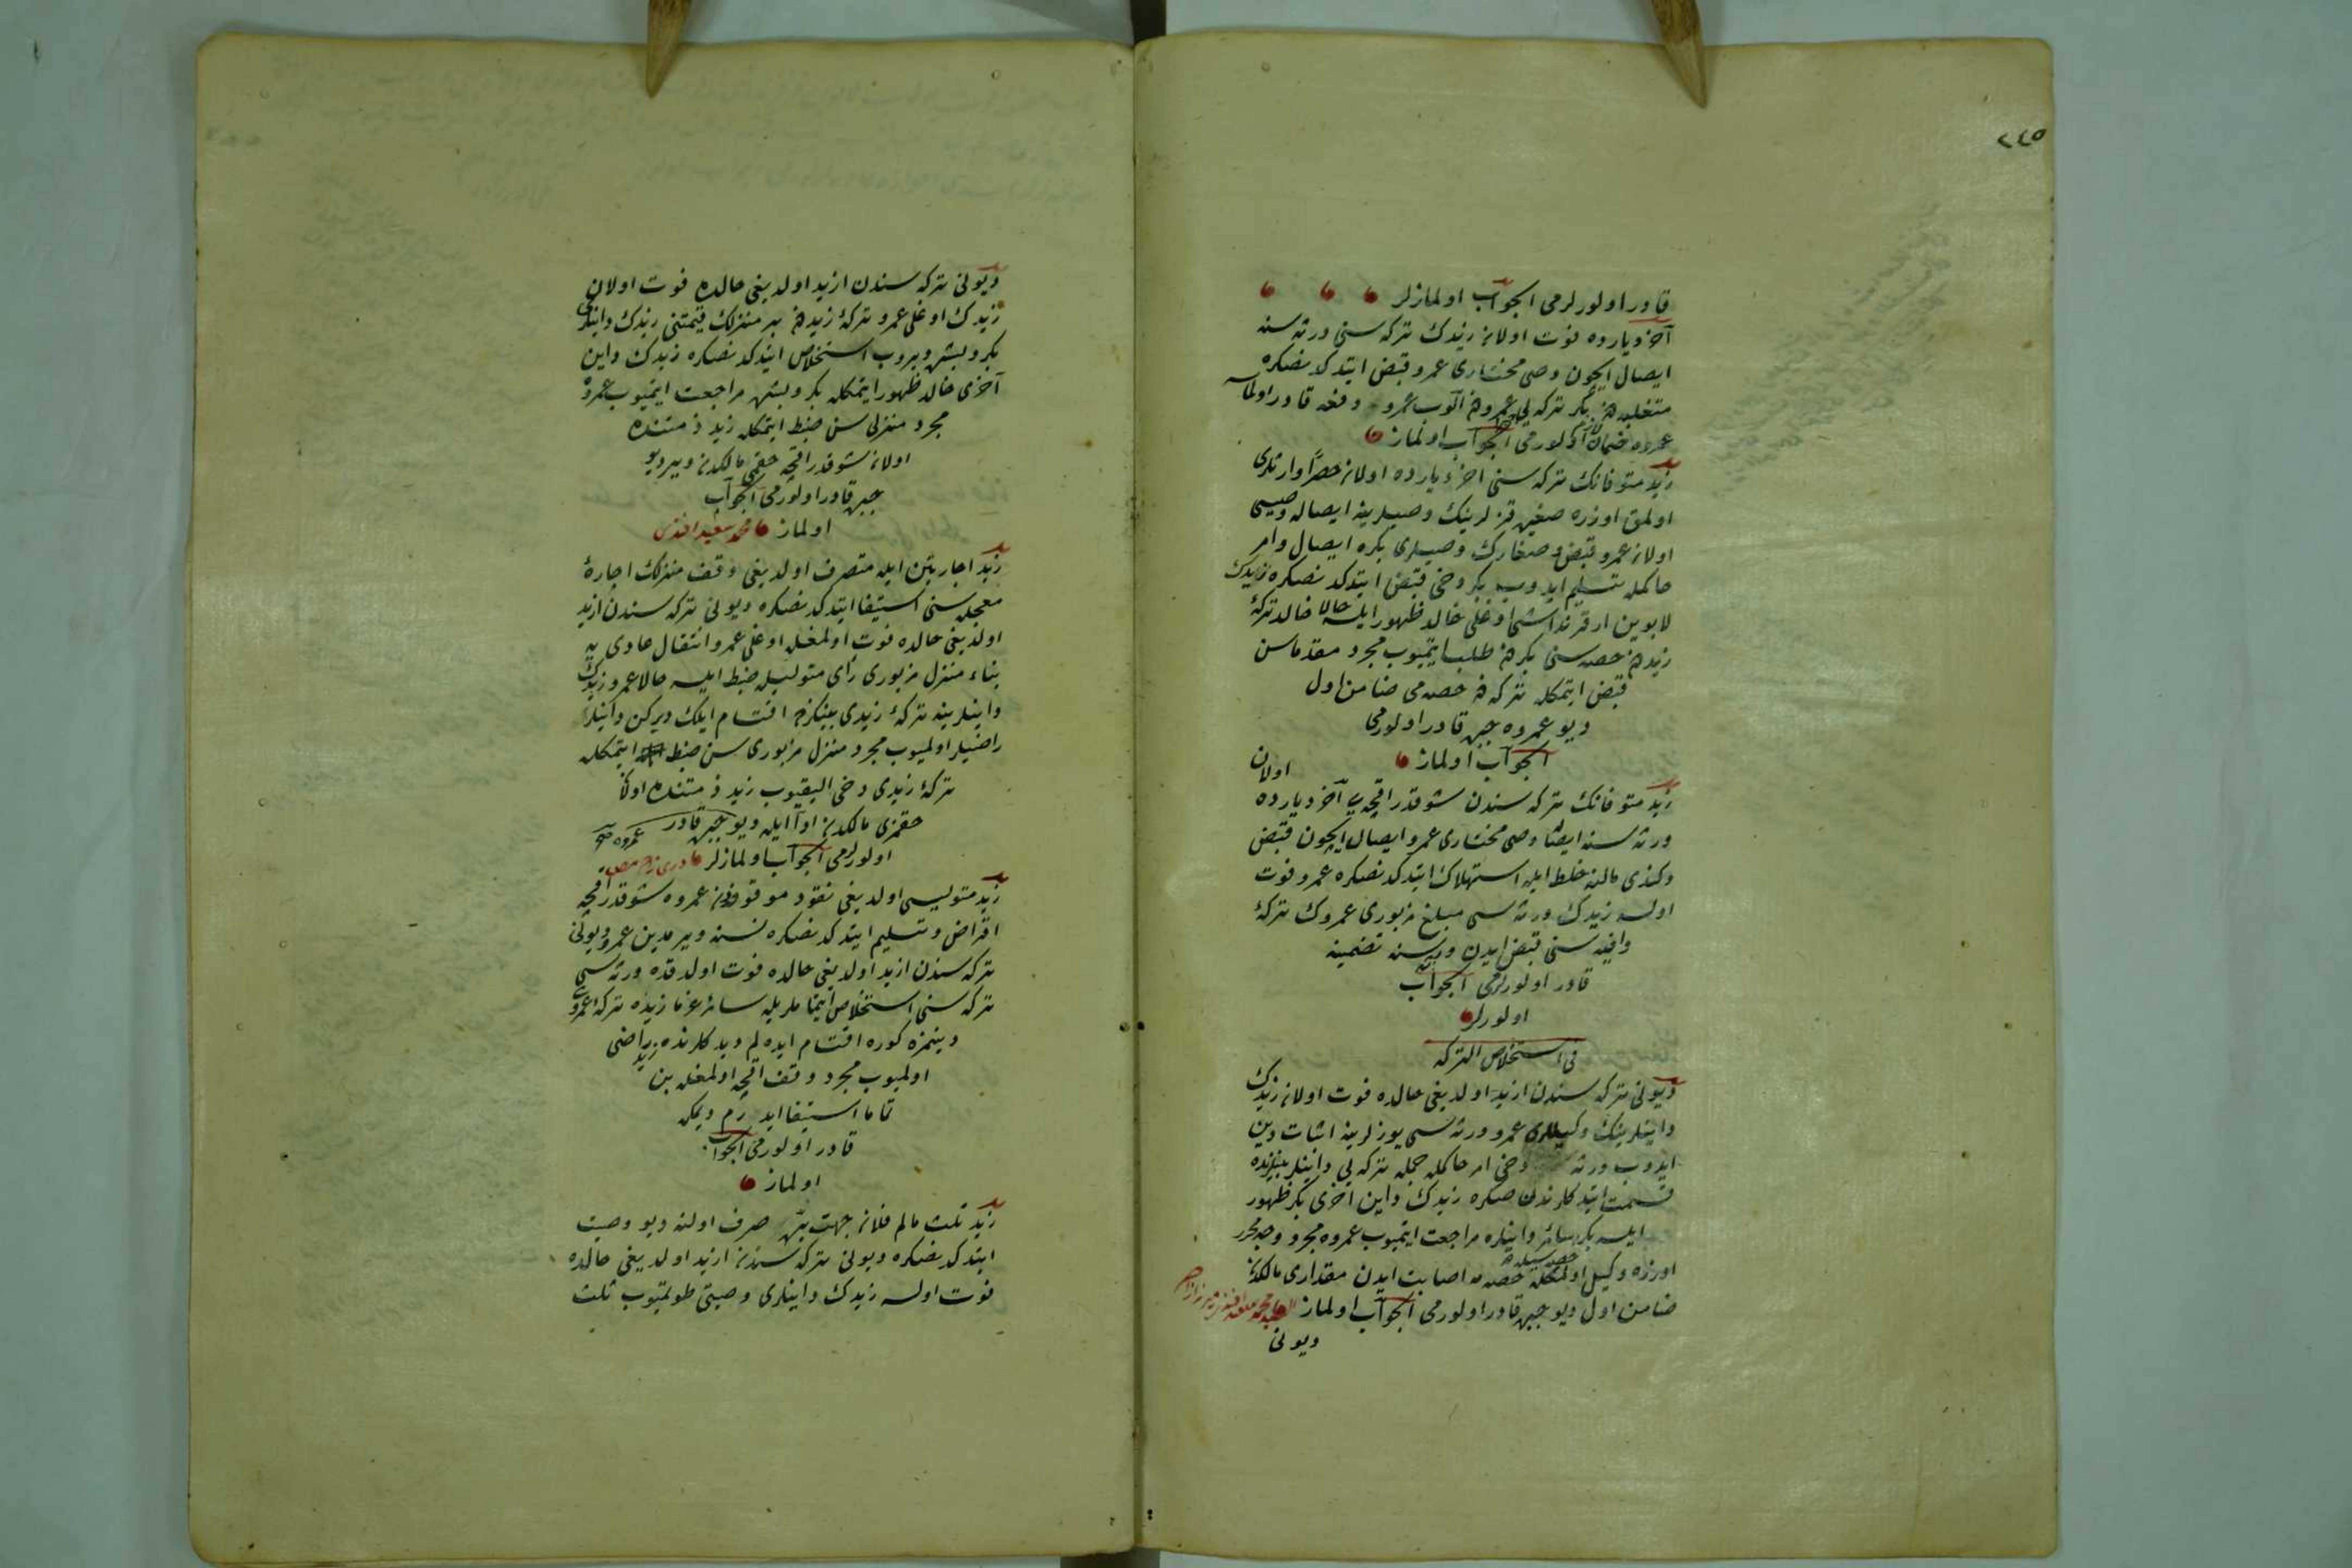 ٢٤٥
قادر اولورلرمی الجواب اولمازلر
آخر دیارده فوت اولان زیدك تركه سنی ورثه سنه
ایصال ایچون وصی مختاری عمرو قبض ایتدكدنصكره
متغلبه دن بكر تركه یی عمرودن آلوب عمرو دفعه قادر اولماسه
عمروه ضمان لازم اولورمی الجواب اولماز
زید متوفانك تركه سنی اخر دیارده اولان حصرا وارثلری
اولمق اوزره صغیر قزلرینك وصیلرینه ایصاله وصیسی
اولان عمرو قبض و صغارك وصیلری بكره ایصال و امر
حاكمله تسلیم ایدوب بكر دخی قبض ایتدكدنصكره زیدك
لابوین ار قرنداشی اوغلی خالد ظهور ایلسه حالا خالد تركۀ
زیددن حصه سنی بكردن طلب ایتمیوب مجرد مقدماسن
قبض ایتمكله تركه دن حصه می ضامن اول
دیو عمروه جبره قادر اولورمی
الجواب اولماز
زید متوفانك تركه سندن شوقدر اقچه یی آخر دیارده اولان
ورثه سنه ایصاله وصی مختاری عمرو ایصال ایچون قبض
وكندی مالنه خلط ایله استهلاك ایتدكدنصكره عمرو فوت
اولسه زیدك ورثه سی مبلغ مزبوری عمروك تركۀ
وافیه سنی قبض ایدن ورثه سنه تضمینه
قادر اولورلرمی الجواب
اولورلر
فی استخلاص التركه
دیونی تركه سندن ازید اولدیغی حالده فوت اولان زیدك
داینلرینك وكیللری عمرو ورثه سی یوزلرینه اثبات دین
ایدوب ورثه دخی امر حاكمله جمله تركه یی داینلر بینلرنده
قسمت ایتدكلرندن صكره زیدك داین آخری بكر ظهور
ایلسه بكر سائر داینلره مراجعت ایتمیوب عمروه مجرد وجه محرر
اوزره وكیل اولمغله حصه مه اصابت ایدن مقداری مالكدن
ضامن اول دیو جبره قادر اولورمی الجواب اولماز
دیونی
دیونی تركه سندن ازید اولدیغی حالده فوت اولان
زیدك اوغلی عمرو تركۀ زیددن بر منزلك قیمتنی زیدك داینلری
بكر و بشره ویروب استخلاص ایتدكدنصكره زیدك داین
آخری خالد ظهور ایتمكله بكر و بشره مراجعت ایتمیوب عمروه
مجرد منزلی سن ضبط ایتمكله زید ذمتنده
اولان شوقدر اقچه حقمی مالكدن ویر دیو
جبره قادر اولورمی الجواب
اولماز محمد سعید افندی
زید اجارتین ایله متصرف اولدیغی وقف منزلك اجارۀ
معجله سنی استیفا ایتدكدنصكره دیونی تركه سندن ازید
اولدیغی حالده فوت اولمغله اوغلی عمرو انتقال عادی یه
بناء منزل مزبوری رأی متولیله ضبط ایلسه حالا عمرو زیدك
داینلرینه تركۀ زیدی بینكزده اقتسام ایلك دیركن داینلر
راضیلر اولمیوب مجرد منزل مزبوری سن ضبط ایتمكله
تركۀ زیدی دخی الیقیوب زید ذمتنده اولان
حقمزی مالكدن ادا ایله دیو عمروه جبره قادر
اولورلرمی الجواب اولمازلر
زید متولیسی اولدیغی نقود موقوفه دن عمروه شوقدر اقچه
اقراض و تسلیم ایتدكدنصكره مدین عمرو دیونی
تركه سندن ازید اولدیغی حالده فوت اولدقده ورثه سی
تركه سنی استخلاص ایتماملریله سائر غرما زیده تركۀ عمروی
دینمزه كوره اقتسام ایده لم دیدكلرنده زید راضی
اولمیوب مجرد وقف اقچه اولمغله بن
تماما استیفا ایدرم دیمكه
قادر اولورمی الجواب
اولماز
زید ثلث مالم فلان جهت بره صرف اولنه دیو وصیت
ایتدكدنصكره دیونی تركه سندن ازید اولدیغی حالده
فوت اولسه زیدك داینلری وصیتی طوتمیوب ثلث